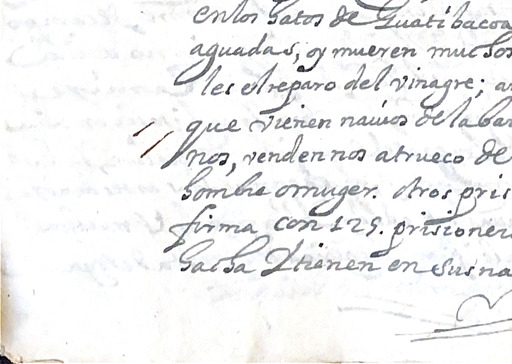 en los hatos de Guatibacoa
aguadas, oy mueren muchos
les el reparo del vinagre; a
que vienen navios de la bar
nos, vendennos atrueco de
hombre omuger. otros pris
firma con 125. prisioner
hacha Ytienen en sus na